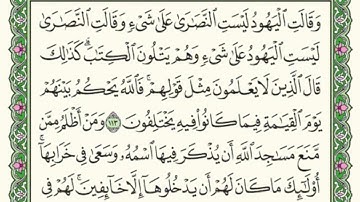 وَقَالَتِ ٱلْيَهُودُ لَيْسَتِ ٱلنَّصَـٰرَىٰ عَلَىٰ شَىْءٍ وَقَالَتِ ٱلنَّصَـٰرَىٰ
لَيْسَتِ ٱلْيَهُودُ عَلَىٰ شَىْءٍ وَهُمْ يَتْلُونَ ٱلْكِتَـٰبَ ۗ كَذَٰلِكَ
قَالَ ٱلَّذِينَ لَا يَعْلَمُونَ مِثْلَ قَوْلِهِمْ ۚ فَٱللَّهُ يَحْكُمُ بَيْنَهُمْ
يَوْمَ ٱلْقِيَـٰمَةِ فِيمَا كَانُوا۟ فِيهِ يَخْتَلِفُونَ ١١٣ وَمَنْ أَظْلَمُ مِمَّن
مَّنَعَ مَسَـٰجِدَ ٱللَّهِ أَن يُذْكَرَ فِيهَا ٱسْمُهُۥ وَسَعَىٰ فِى خَرَابِهَآ ۚ
أُو۟لَـٰٓئِكَ مَا كَانَ لَهُمْ أَن يَدْخُلُوهَآ إِلَّا خَآئِفِينَ ۚ لَهُمْ فِى